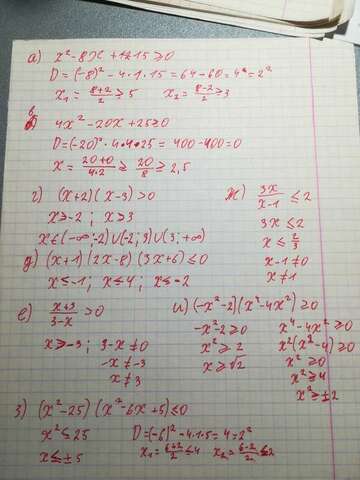 а) x² - 8x + 15 ≥ 0
D = (-8)² - 4 · 1 · 15 = 64 - 60 = 4 = 2²
x₁ = (8+2)/2 ≥ 5    x₂ = (8-2)/2 ≥ 3
в) 4x² - 20x + 25 ≥ 0
D = (-20)² · 4 · 4 · 25 = 400 - 400 = 0
x = (20+0)/(4·2) ≥ 20/8 ≥ 2,5
г) (x+2)(x-3) > 0
x > -2 ; x > 3
x ∈ (-∞; -2) ∪ (-2; 3) ∪ (3; +∞)
д) (x+1)(2x-8)(3x+6) ≤ 0
x ≤ -1; x ≤ 4; x ≤ -2
е) (x+3)/(3-x) > 0
x > -3 ; 3-x ≠ 0
-x ≠ -3
x ≠ 3
ж) 3x/(x-1) ≤ 2
3x ≤ 2
x ≤ 2/3
x-1 ≠ 0
x ≠ 1
и) (-x²-2)(x⁴-4x²) ≥ 0
-x²-2 ≥ 0
x² ≥ 2
x ≥ √2
x⁴-4x² ≥ 0
x²(x²-4) ≥ 0
x² ≥ 0
x² ≥ 4
x² ≥ ±2
з) (x²-25)(x²-6x+5) ≤ 0
x² ≤ 25
x ≤ ±5
D = (-6)² - 4·1·5 = 4 = 2²
x₁ = (6+2)/2 ≤ 4    x₂ = (6-2)/2 ≤ 2